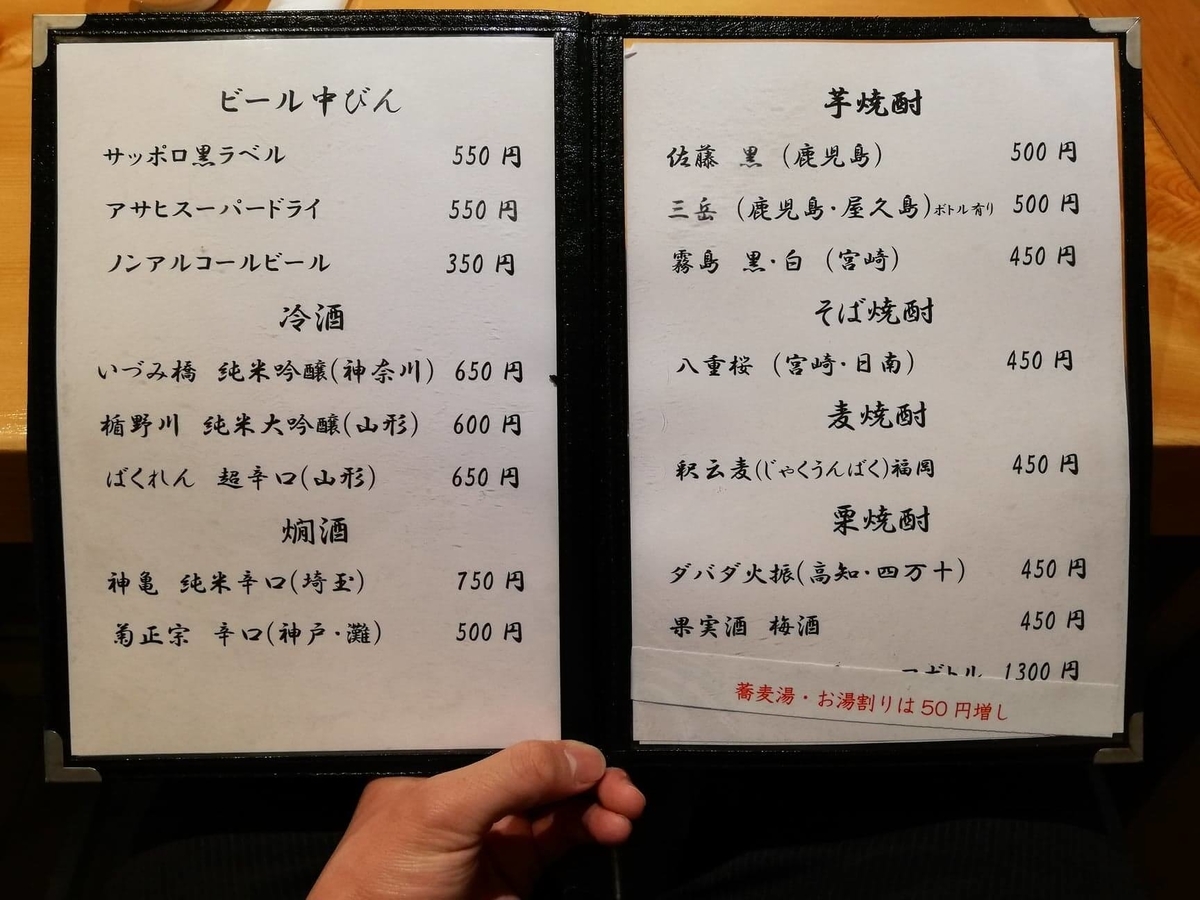 ビール中びん
サッポロ黒ラベル 550円
アサヒスーパードライ 550円
ノンアルコールビール 350円
冷酒
いづみ橋 純米吟醸(神奈川) 650円
楯野川 純米大吟醸(山形) 600円
ばくれん 超辛口(山形) 650円
燗酒
神亀 純米辛口(埼玉) 750円
菊正宗 辛口(神戸・灘) 500円
芋焼酎
佐藤 黒 (鹿児島) 500円
三岳 (鹿児島・屋久島)ボトル有り 500円
霧島 黒・白 (宮崎) 450円
そば焼酎
八重桜 (宮崎・日南) 450円
麦焼酎
釈云麦(じゃくうんばく)福岡 450円
栗焼酎
ダバダ火振(高知・四万十) 450円
果実酒 梅酒 450円
ボトル 1300円
蕎麦湯・お湯割りは50円増し